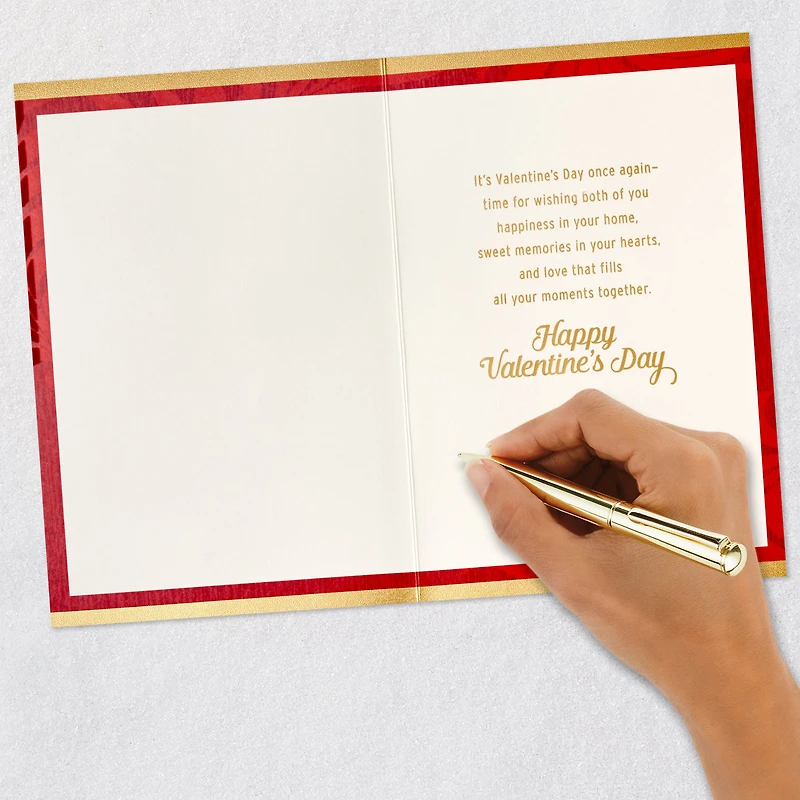 It's Valentine's Day once again–
time for wishing both of you
happiness in your home,
sweet memories in your hearts,
and love that fills
all your moments together.
Happy
Valentine's Day